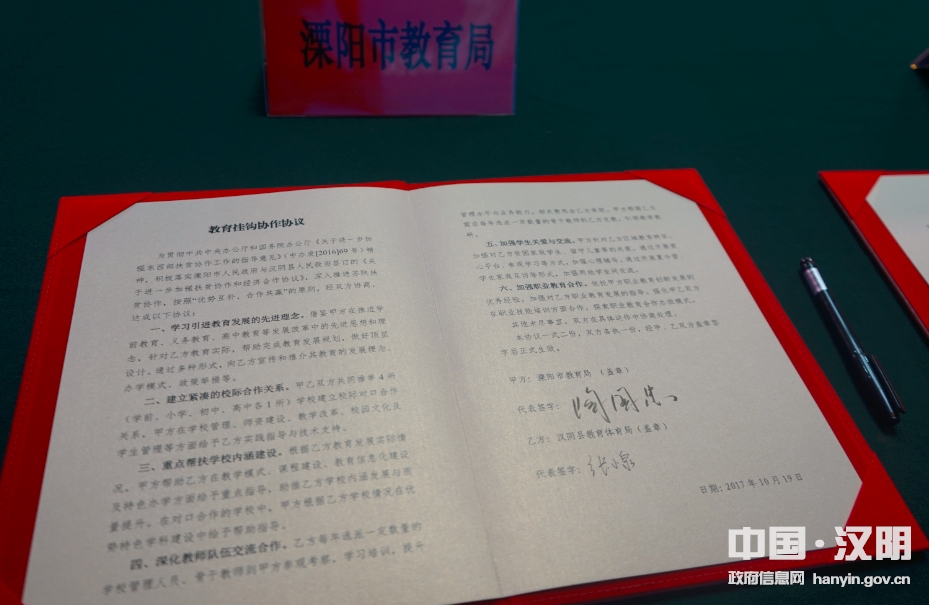 溧阳市教育局
教育挂钩协作协议
为贯彻中共中央办公厅和国务院办公厅《关于进一步加
强东西部扶贫协作工作的指导意见》(中办发[2016]69号)精
神，积极落实溧阳市人民政府与汉阴县人民政府签订的《关
于进一步加强扶贫协作和经济合作协议》，深入推进苏陕扶
贫协作，按照“优势互补、合作共赢”的原则，经双方协商，
达成以下协议：
一、学习引进教育发展的先进理念。借鉴甲方在推进学
前教育、义务教育、高中教育等发展改革中的先进思想和理
念，针对乙方教育实际，帮助完成教育发展规划，做好顶层
设计。通过多种形式，向乙方宣传和推介其教育的发展理念、
办学模式、政策举措等。
二、建立紧凑的校际合作关系。甲乙双方共同推举4所
（学前、小学、初中、高中各1所）学校建立校际对口合作
关系，甲方在学校管理、师资建设、教学改革、校园文化及
学生管理等方面给予乙方实践指导与技术支持。
三、重点帮扶学校内涵建设。根据乙方教育发展实际情
况，甲方帮助乙方在教学模式、课程建设、教育信息化建设
及特色办学方面给予重点指导，助推乙方学校内涵发展与质
量提升。在对口合作的学校中，甲方根据乙方学校情况在优
势特色学科建设中给予帮助指导。
四、深化教师队伍交流合作。乙方每年选派一定数量的
学校管理人员、骨干教师到甲方参观考察，学习培训，提升
五、加强学生关爱与交流。
六、加强职业教育合作。
优秀经验，加强对乙方职业教育发展的指导，强化甲乙双方
在职业技能培训方面合作，探索职业教育合作办班模式。
其他未尽事宜，双方在具体议作中协商处理。
本协议一式二份，双方各执一份，经甲、乙双方盖章签
字后正式生效。
甲方：溧阳市教育局（盖章）
代表签字：
乙方：汉阴县教育体育局（盖章）
代表签字：
日期：2017年10月19日
中国·汉阴
政府信息网 hanyin.gov.cn